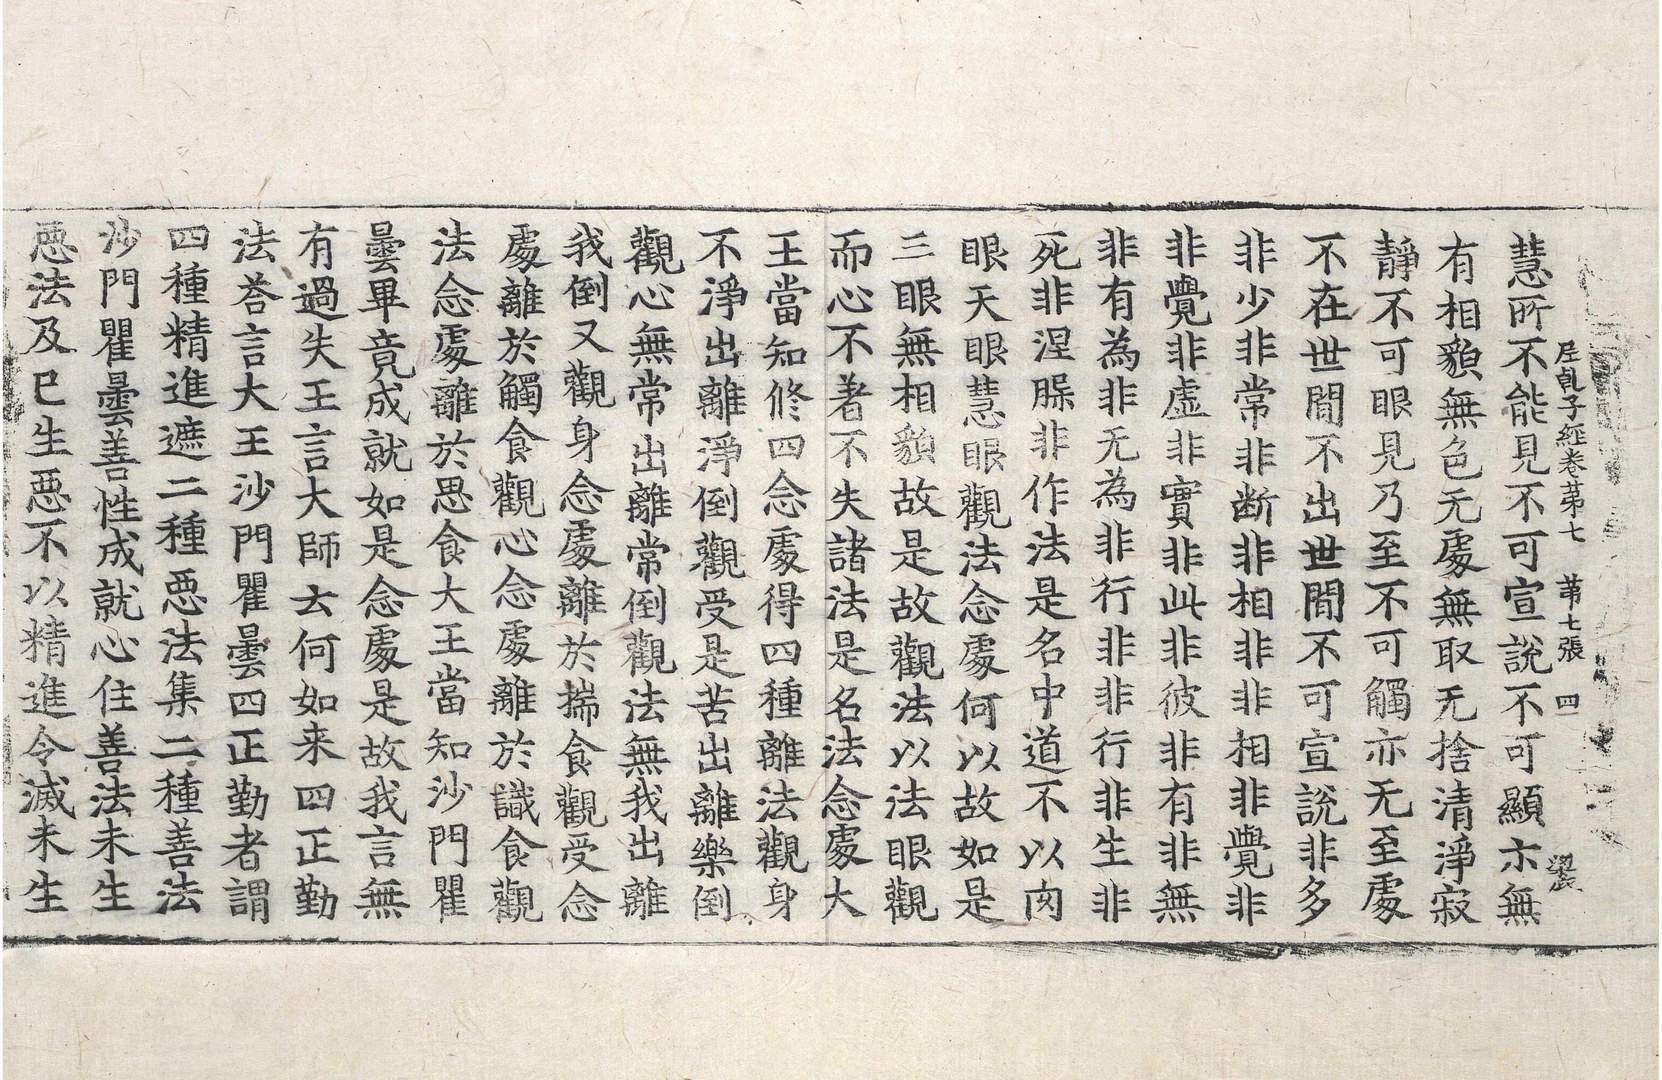 尼乹子經卷苐七　苐七張　四
慧所不能見不可宣說不可顯示無
有相貌無色无處無取无捨清淨寂
靜不可眼見乃至不可觸亦无至處
不在世間不出世間不可宣說非多
非少非常非断非相非非相非覺非
非覺非虛非實非此非彼非有非無
非有為非无為非行非非行非生非
死非涅槃非作法是名中道不以肉
眼天眼慧眼觀法念處何以故如是
三眼無相貌故是故觀法以法眼觀
而心不著不失諸法是名法念處大
王當知修四念處得四種離法觀身
不淨出離淨倒觀受是苦出離樂倒
觀心無常出離常倒觀法無我出離
我倒又觀身念處離於揣食觀受念
處離於觸食觀心念處離於識食觀
法念處離於思食大王當知沙門瞿
曇畢竟成就如是念處是故我言無
有過失王言大師云何如来四正勤
法荅言大王沙門瞿曇四正勤者謂
四種精進遮二種惡法集二種善法
沙門瞿曇善性成就心住善法未生
惡法及已生惡不以精進令滅未生